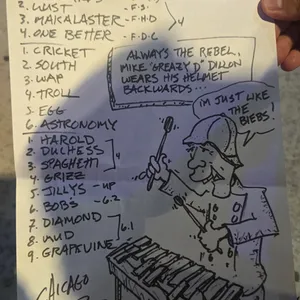 2. LUST - F.S.
3. MAKALASTER - F.H.D
4. ONE BETTER - F.D.C
4
1. CRICKET
2. SOUTH
3. WAP
4. TROLL
5. EGG
6. ASTRONOMY
1. HAROLD
2. DUCHESS
3. SPAGHETTI
4
4. GRIZZ
5. JILLYS - UP
6. BOB'S - 6.2
7. DIAMOND
8. MUD
6.1
9. GRAPEVINE
CHICAGO
ALWAYS THE REBEL,
MIKE "GREAZY D" DILLON
WEARS HIS HELMET
BACKWARDS...
I'M JUST LIKE
THE
BIEBS!